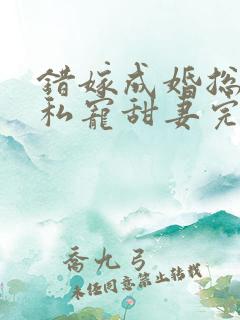 錯嫁成婚总
私寵甜妻完
喬九弓
未经同意禁止转载